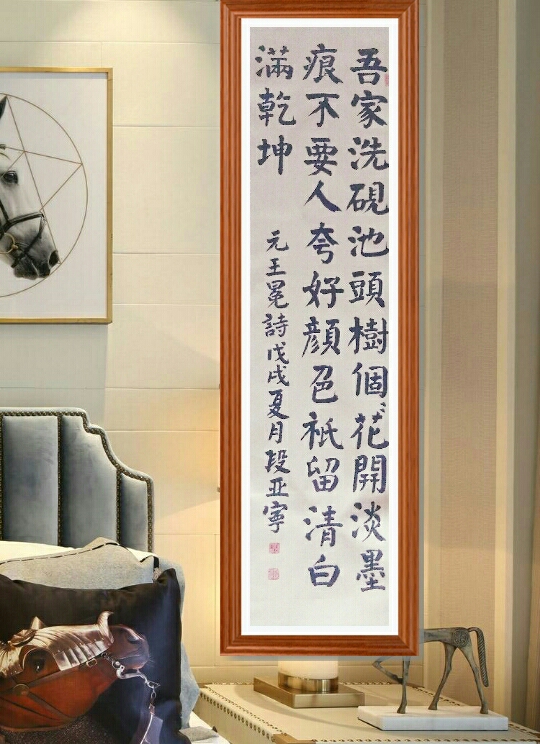 吾家洗硯池頭樹個〻花開淡墨
痕不要人夸好顏色祇留清白
滿乾坤
元王冕詩戊戌夏月段亚寧